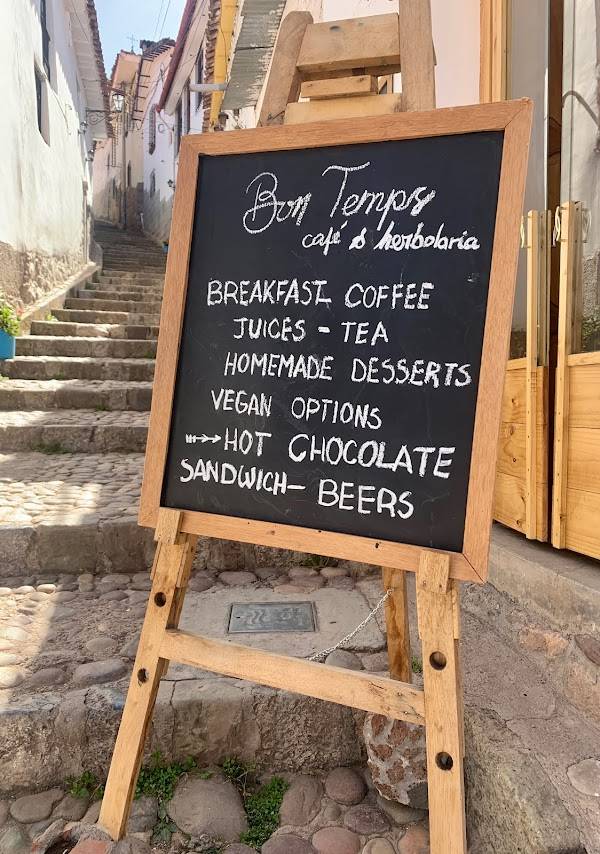 Bon Temps
café & herbolaria
BREAKFAST COFFEE
JUICES - TEA
HOMEMADE DESSERTS
VEGAN OPTIONS
HOT CHOCOLATE
SANDWICH - BEERS